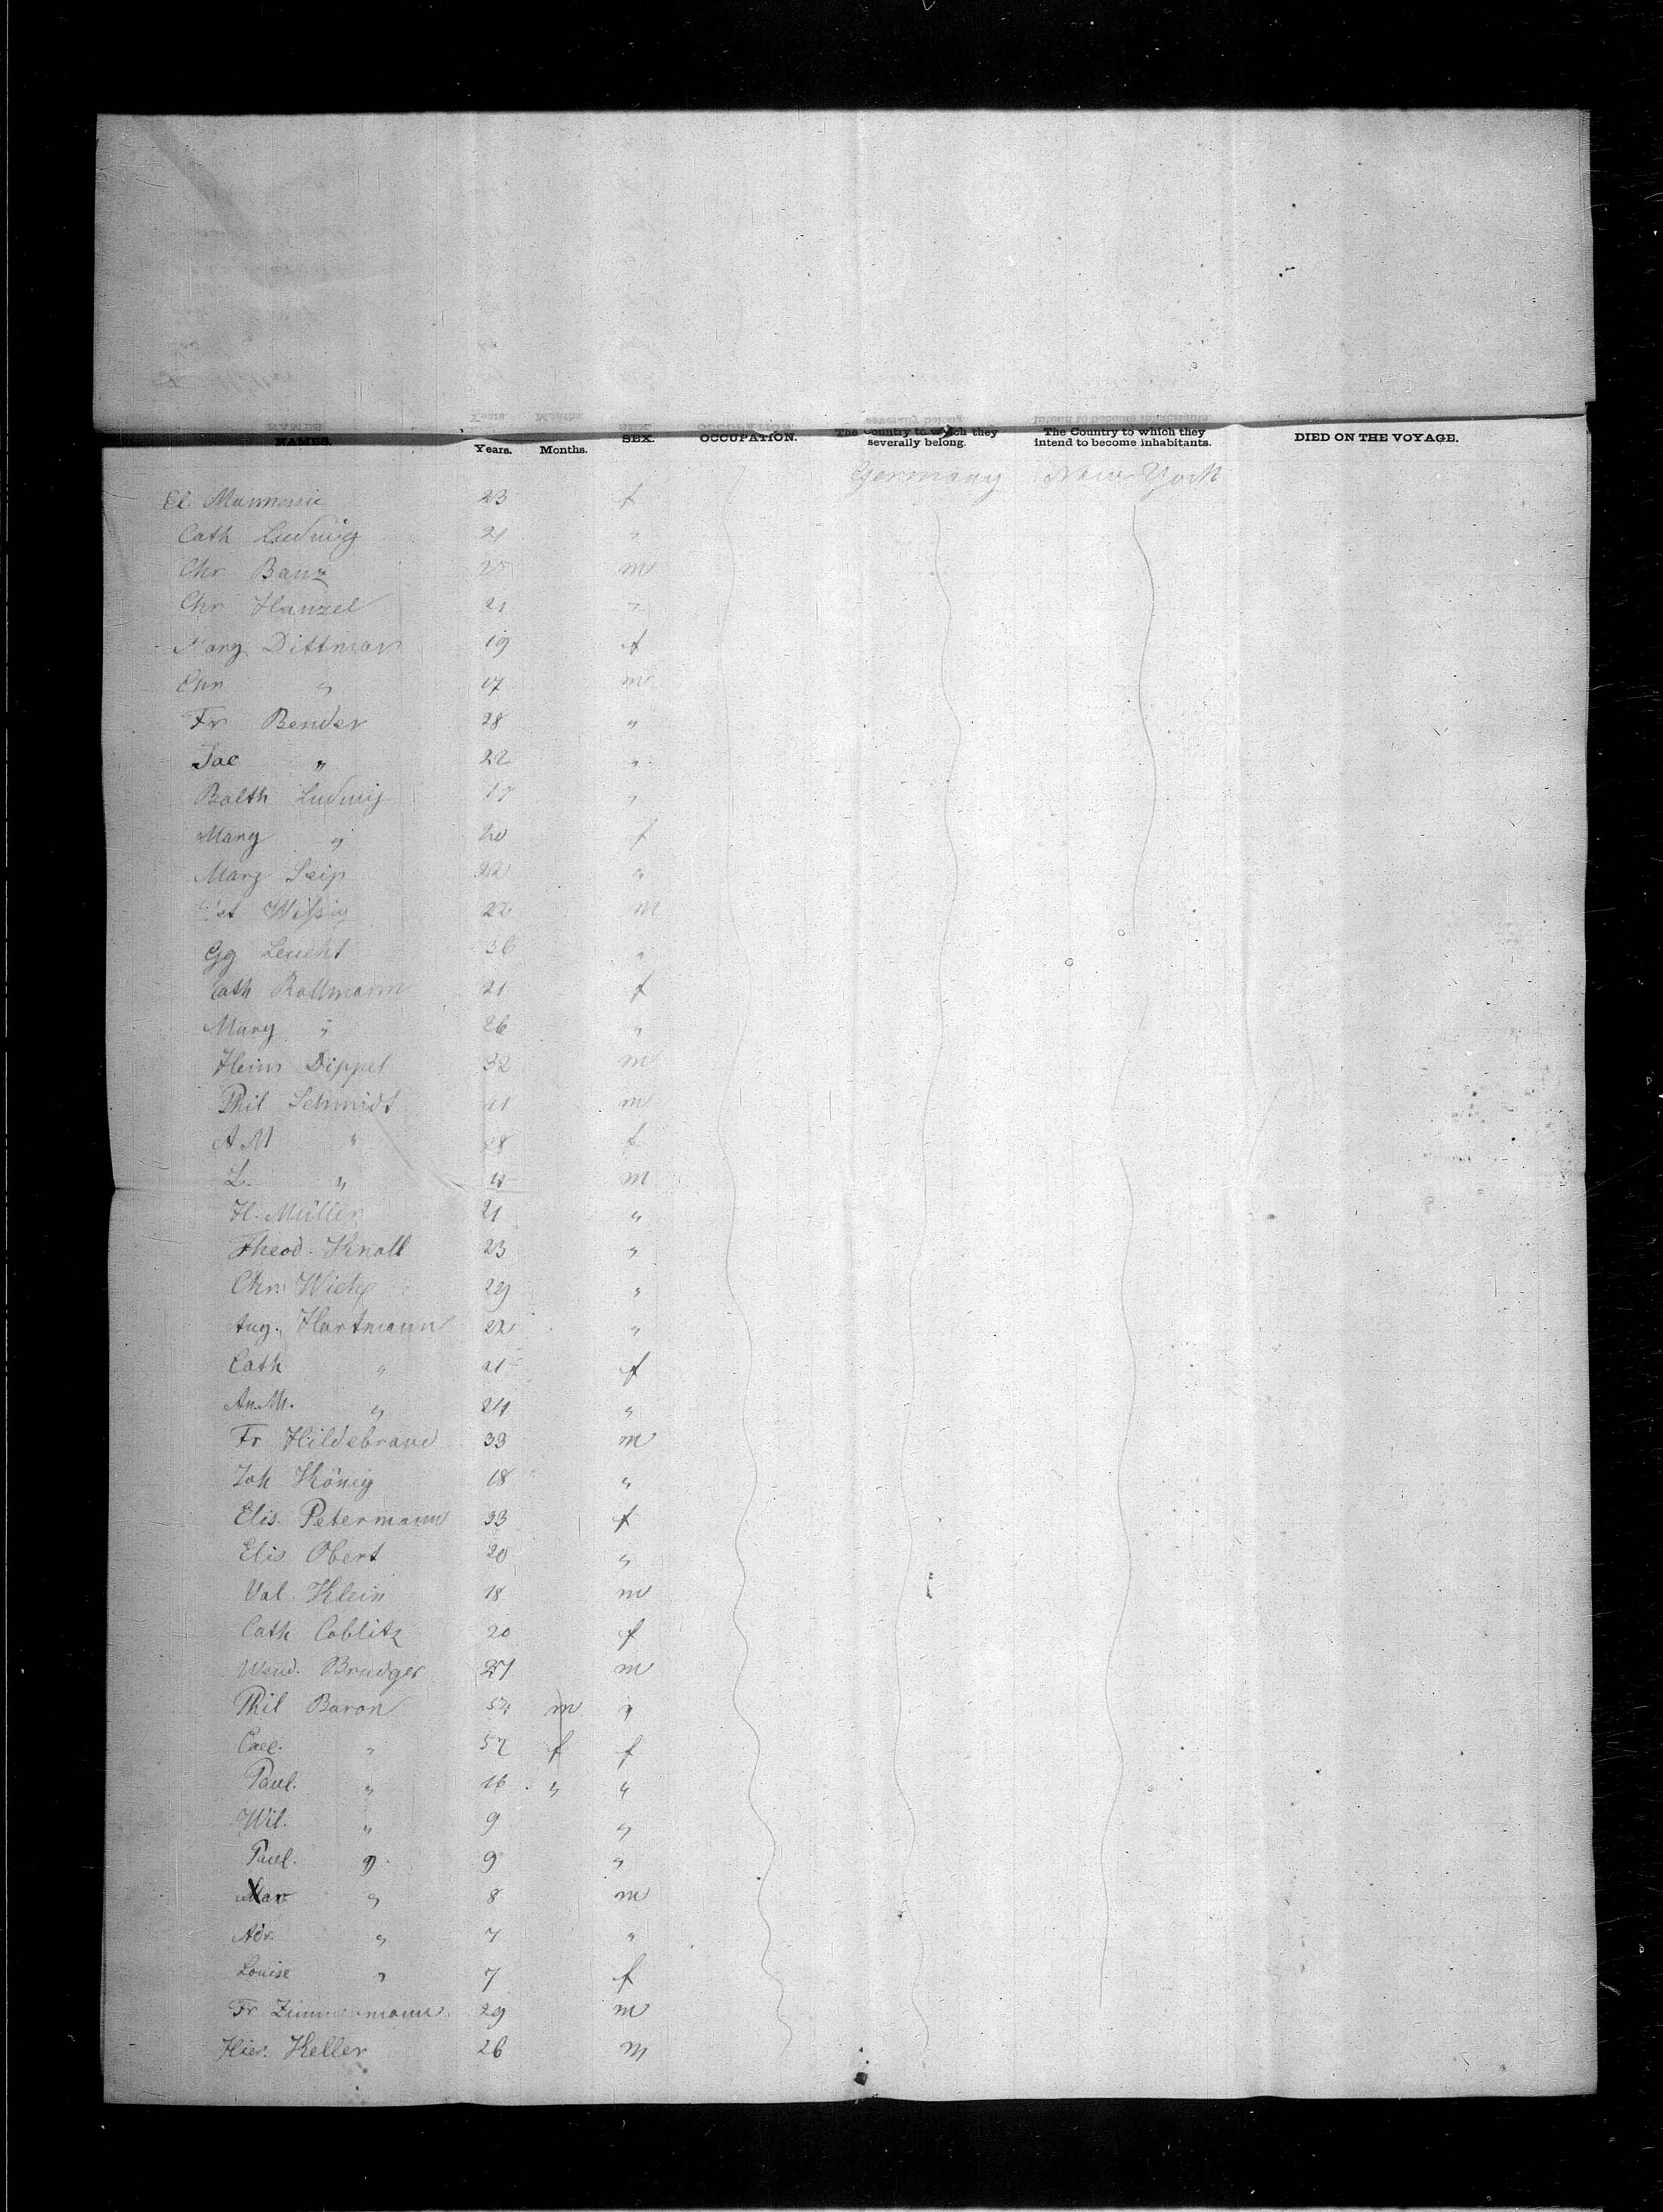 NAMES. Years. Months. SEX. OCCUPATION. The Country to which they severally belong. The Country to which they intend to become inhabitants. DIED ON THE VOYAGE.
Germany New-York
El. 23 f
Cath Ludwig 21 "
Chr Banz 25 m
Chr Hanzel 21 "
Marg Dittmar 19 f
Chr " 17 m
Fr Bender 28 "
Jac " 22 "
Balth Ludwig 17 "
Marg " 20 f
Marg Seip 22 "
22 m
Gg Leucht 36 "
Cath Rollmann 21 f
Marg " 26 "
Heinr Dippel 32 m
Phil Schmidt m
A M " f
L. " m
H. Müller 21 "
Theod. Knall 23 "
Chr. 29 "
Aug. Hartmann 22 "
Cath " 21 f
An.M. " 24 "
Fr Hildebrand 33 m
Joh König 18 "
Elis. Petermann 33 f
Elis Obert 20 "
Val. Klein 18 m
Cath Coblitz 20 f
Wend. Brudger 27 m
Phil Baron 54 m "
" 52 f f
Paul. " 16 " "
Wil. " 9 "
Paul. " 9 "
" 8 m
Adr. " 7 "
Louise " 7 f
Fr Zimmermann 29 m
Hier. Keller 26 m